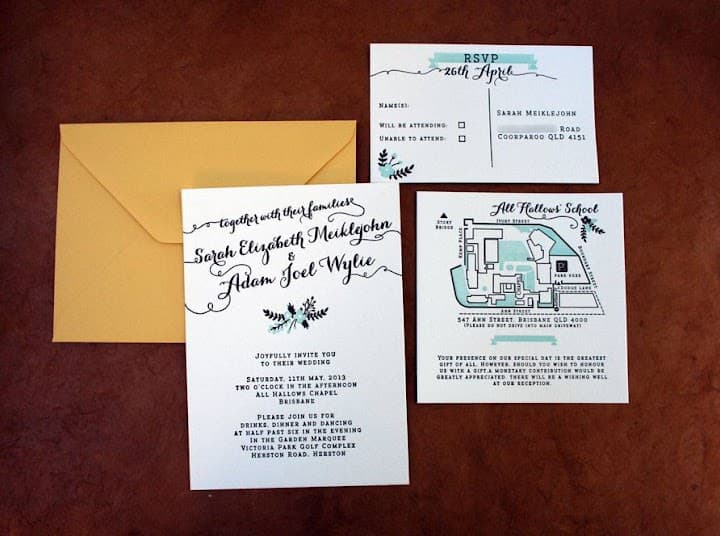 RSVP
26th April
Name(s):
Will be attending:
Unable to attend:
Sarah Meiklejohn
Road
Coorparoo QLD 4151
together with their families
Sarah Elizabeth Meiklejohn
&
Adam Joel Wylie
Joyfully invite you
to their wedding
Saturday, 11th May, 2013
two o'clock in the afternoon
All Hallows Chapel
Brisbane
Please join us for
drinks, dinner and dancing
at half past six in the evening
In the Garden Marquee
Victoria Park Golf Complex
Herston Road, Herston
All Hallows' School
Story
Bridge
Ivory Street
Kemp Place
Boundary Street
Chapel
P
Park here
Dodge Lane
Ann Street
547 Ann Street, Brisbane QLD 4000
(Please do not drive into main driveway)
Your presence on our special day is the greatest
gift of all. However, should you wish to honour
us with a gift,a monetary contribution would be
greatly appreciated. There will be a wishing well
at our reception.